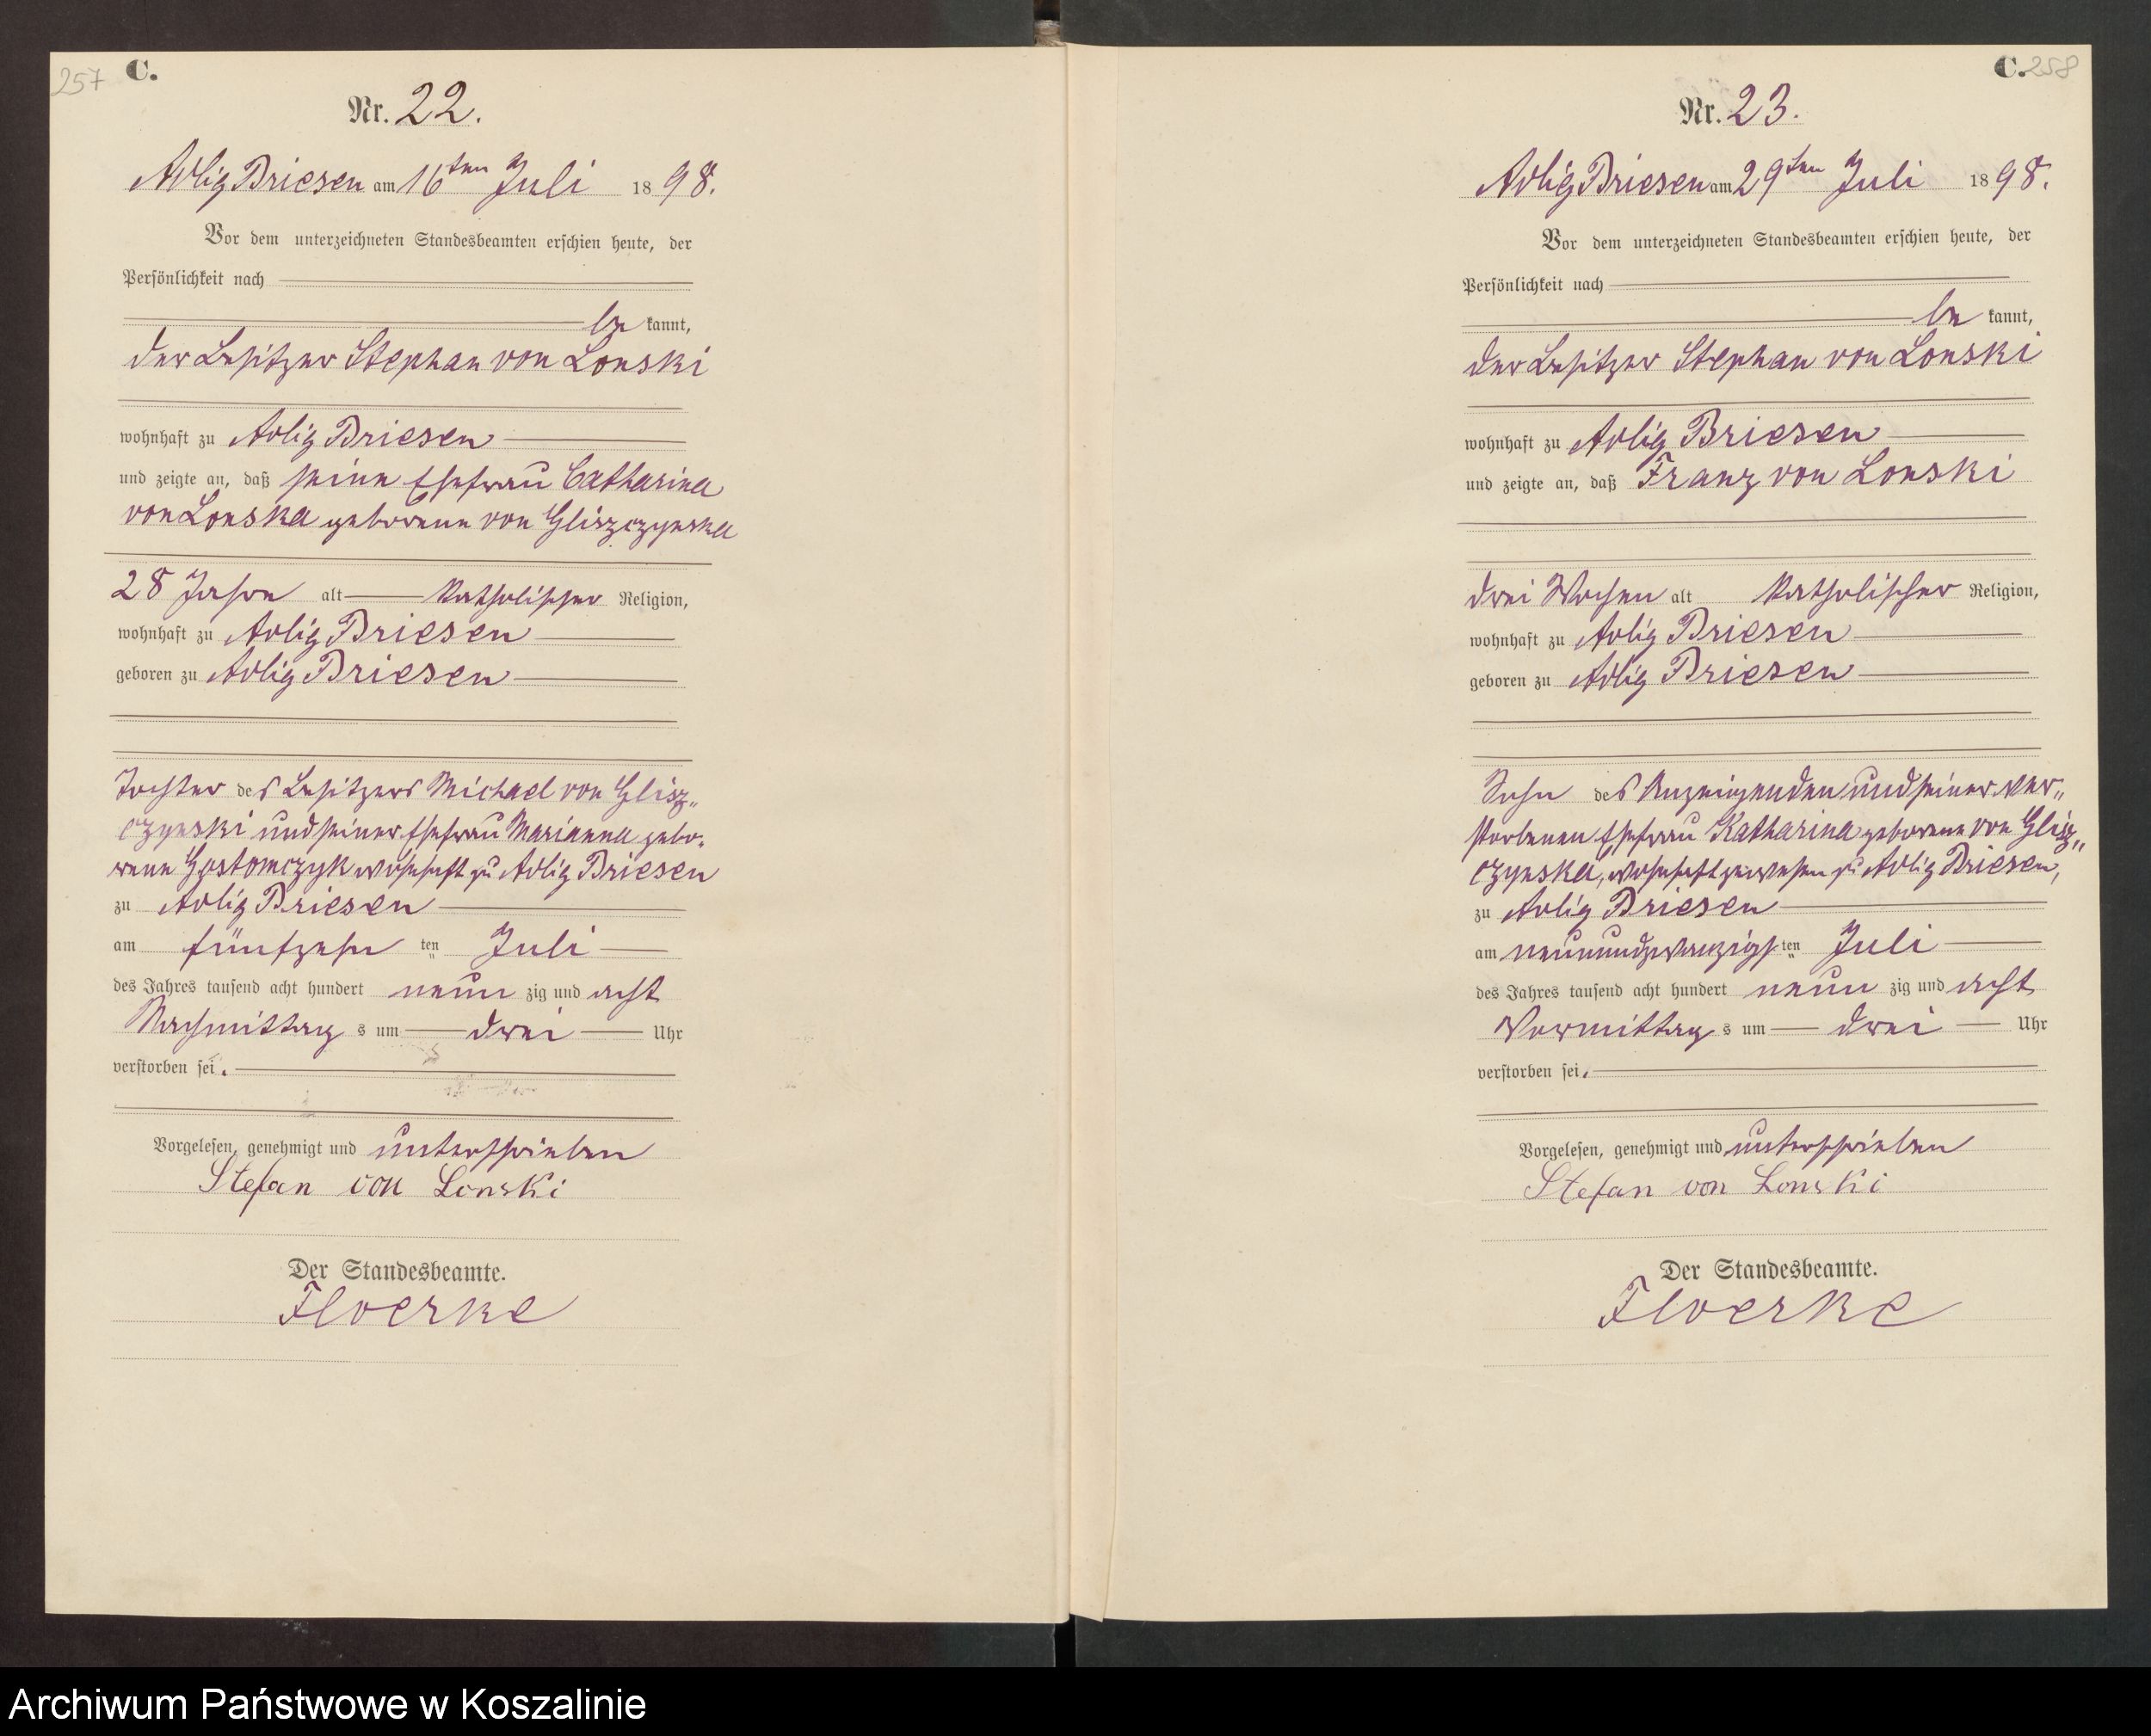 257 C.
Nr. 22.
Adlig Briesen am 16ten Juli 1898.
Vor dem unterzeichneten Standesbeamten erschien heute, der
Persönlichkeit nach
be kannt,
der Besitzer Stephan von Lonski
wohnhaft zu Adlig Briesen
und zeigte an, daß seine Ehefrau Catharina
von Lonska geborene von Gliszczynska
28 Jahre alt katholischer Religion,
wohnhaft zu Adlig Briesen
geboren zu Adlig Briesen
Tochter des Besitzers Michael von Glisz„
czynski und seiner Ehefrau Marianna gebo„
rene Gostomczyk wohnhaft zu Adlig Briesen
zu Adlig Briesen
am fünfzehn ten Juli
des Jahres tausend acht hundert neun zig und acht
Nachmittag s um drei Uhr
verstorben sei.
Vorgelesen, genehmigt und unterschrieben
Stefan von Lonski
Der Standesbeamte.
Floerke
C. 258
Nr. 23.
Adlig Briesen am 29ten Juli 1898.
Vor dem unterzeichneten Standesbeamten erschien heute, der
Persönlichkeit nach
be kannt,
der Besitzer Stephan von Lonski
wohnhaft zu Adlig Briesen
und zeigte an, daß Franz von Lonski
drei Wochen alt katholischer Religion,
wohnhaft zu Adlig Briesen
geboren zu Adlig Briesen
Sohn des Anzeigenden und seiner ver„
storbenen Ehefrau Katharina geborene von Glisz„
czynska, wohnhaft gewesen zu Adlig Briesen,
zu Adlig Briesen
am neunundzwanzigs ten Juli
des Jahres tausend acht hundert neun zig und acht
Vormittag s um drei Uhr
verstorben sei.
Vorgelesen, genehmigt und unterschrieben
Stefan von Lonski
Der Standesbeamte.
Floerke
Archiwum Państwowe w Koszalinie